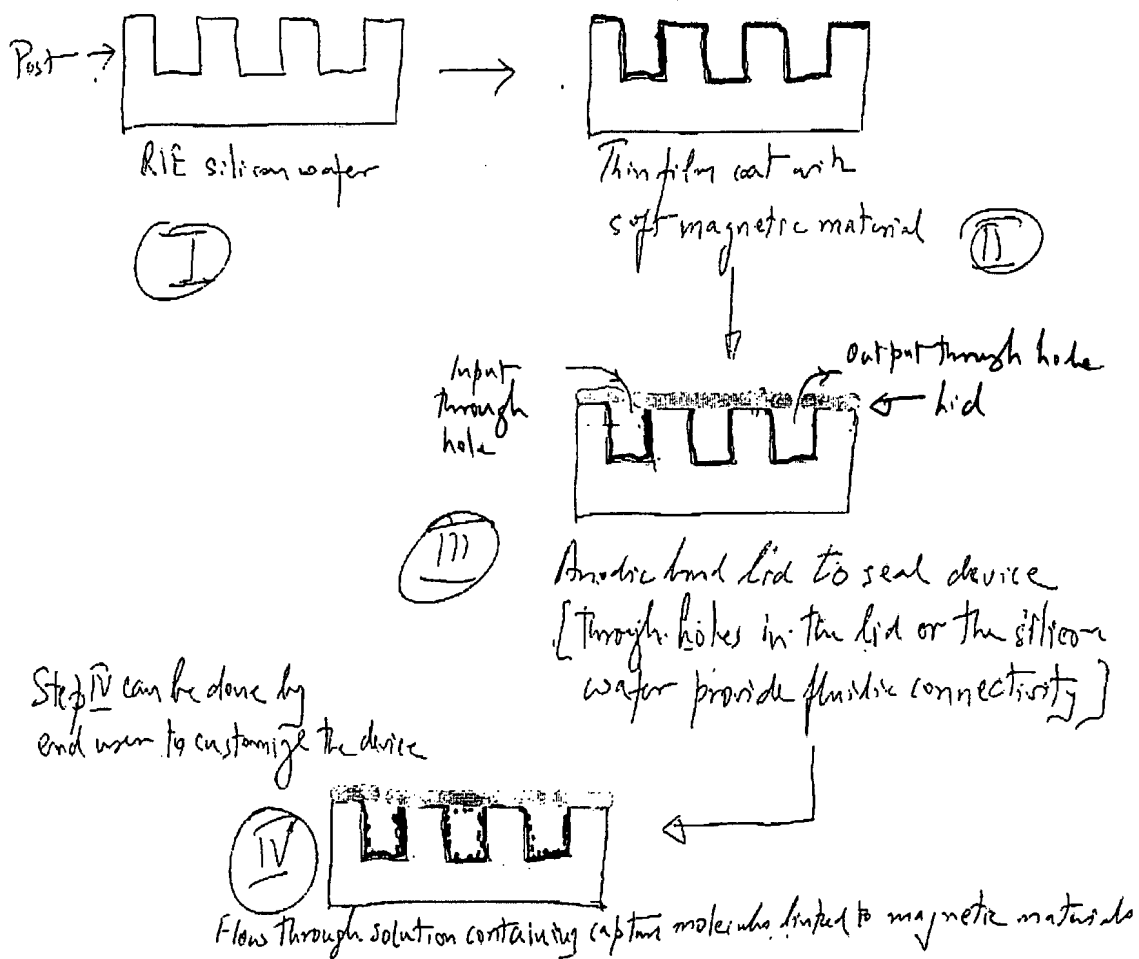 Post →
RIE silicon wafer
I
Thin film coat with
soft magnetic material
II
Input
through
hole
Output through hole
← Lid
III
Anodic bond lid to seal device
[through-holes in the lid or the silicon
wafer provide fluidic connectivity]
Step IV can be done by
end user to customize the device
IV
Flow through solution containing capture molecules linked to magnetic materials